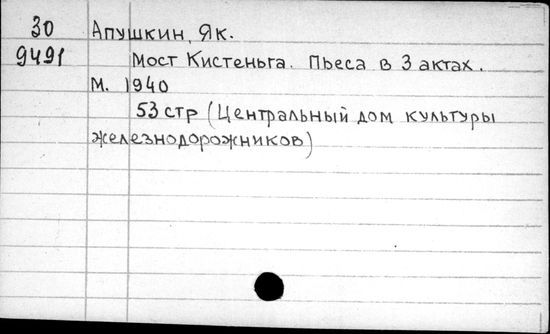 30 Апушкин, Як.
9491 Мост Кистеньга. Пьеса в 3 актах.
М. 1940
53 стр (Центральный дом культуры
железнодорожников)